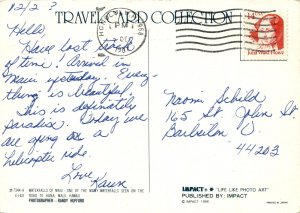 12/2 3
TRAVEL CARD COLLECTION
Hello,
Have lost track
of time! Arrived in
Maui yesterday. Every-
thing is beautiful,
This is definitely
paradise. Today we
are going on a
helicopter ride.
Love
Karen
PM
1987
14
Julia Ward Howe
Naomi Schild
165 St. John St
Barberton O
44203
WATERFALLS OF MAUI - ONE OF THE MANY WATERFALLS SEEN ON THE
ROAD TO HANA, MAUI, HAWAII
PHOTOGRAPHER - RANDY HUFFORD
IMPACT "LIFE LIKE PHOTO ART"
PUBLISHED BY: IMPACT
© IMPACT
PRINTED IN JAPAN